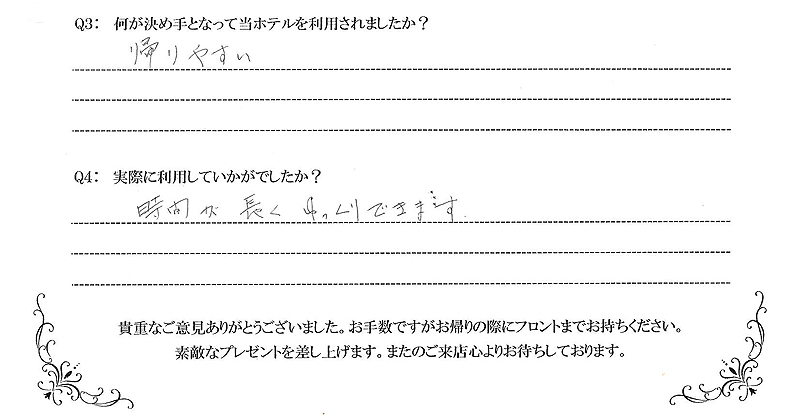 Q3: 何が決め手となって当ホテルを利用されましたか？
帰りやすい
Q4: 実際に利用していかがでしたか？
時間が長くゆっくりできます。
貴重なご意見ありがとうございました。お手数ですがお帰りの際にフロントまでお持ちください。
素敵なプレゼントを差し上げます。またのご来店心よりお待ちしております。